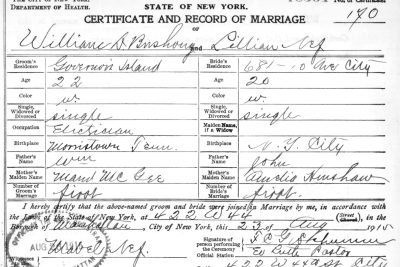 THE CITY OF NEW YORK
DEPARTMENT OF HEALTH.
STATE OF NEW YORK.
No. of Certificate
CERTIFICATE AND RECORD OF MARRIAGE
190
OF
William D Bushong and Lillian Nef
Groom's Residence Governors Island Bride's Residence 681-10 Ave City
Age 22 Age 20
Color w. Color w.
Single, Widowed or Divorced single Single, Widowed or Divorced single
Occupation Electrician Maiden Name, if a Widow
Birthplace Morristown Tenn. Birthplace N. Y. City
Father's Name Wm Father's Name John
Mother's Maiden Name Maud McGee Mother's Maiden Name Amelia
Number of Groom's Marriage first Number of Bride's Marriage first.
I hereby certify that the above-named groom and bride were joined in Marriage by me, in accordance with
the Laws of the State of New York, at 422 W 44 (Street), in the
Borough of Manhattan, City of New York, this 23 of Aug 1915
Mabel Nef. Signature of person performing the Ceremony
Official Station Ev Luth Pastor
422 W 44 St City